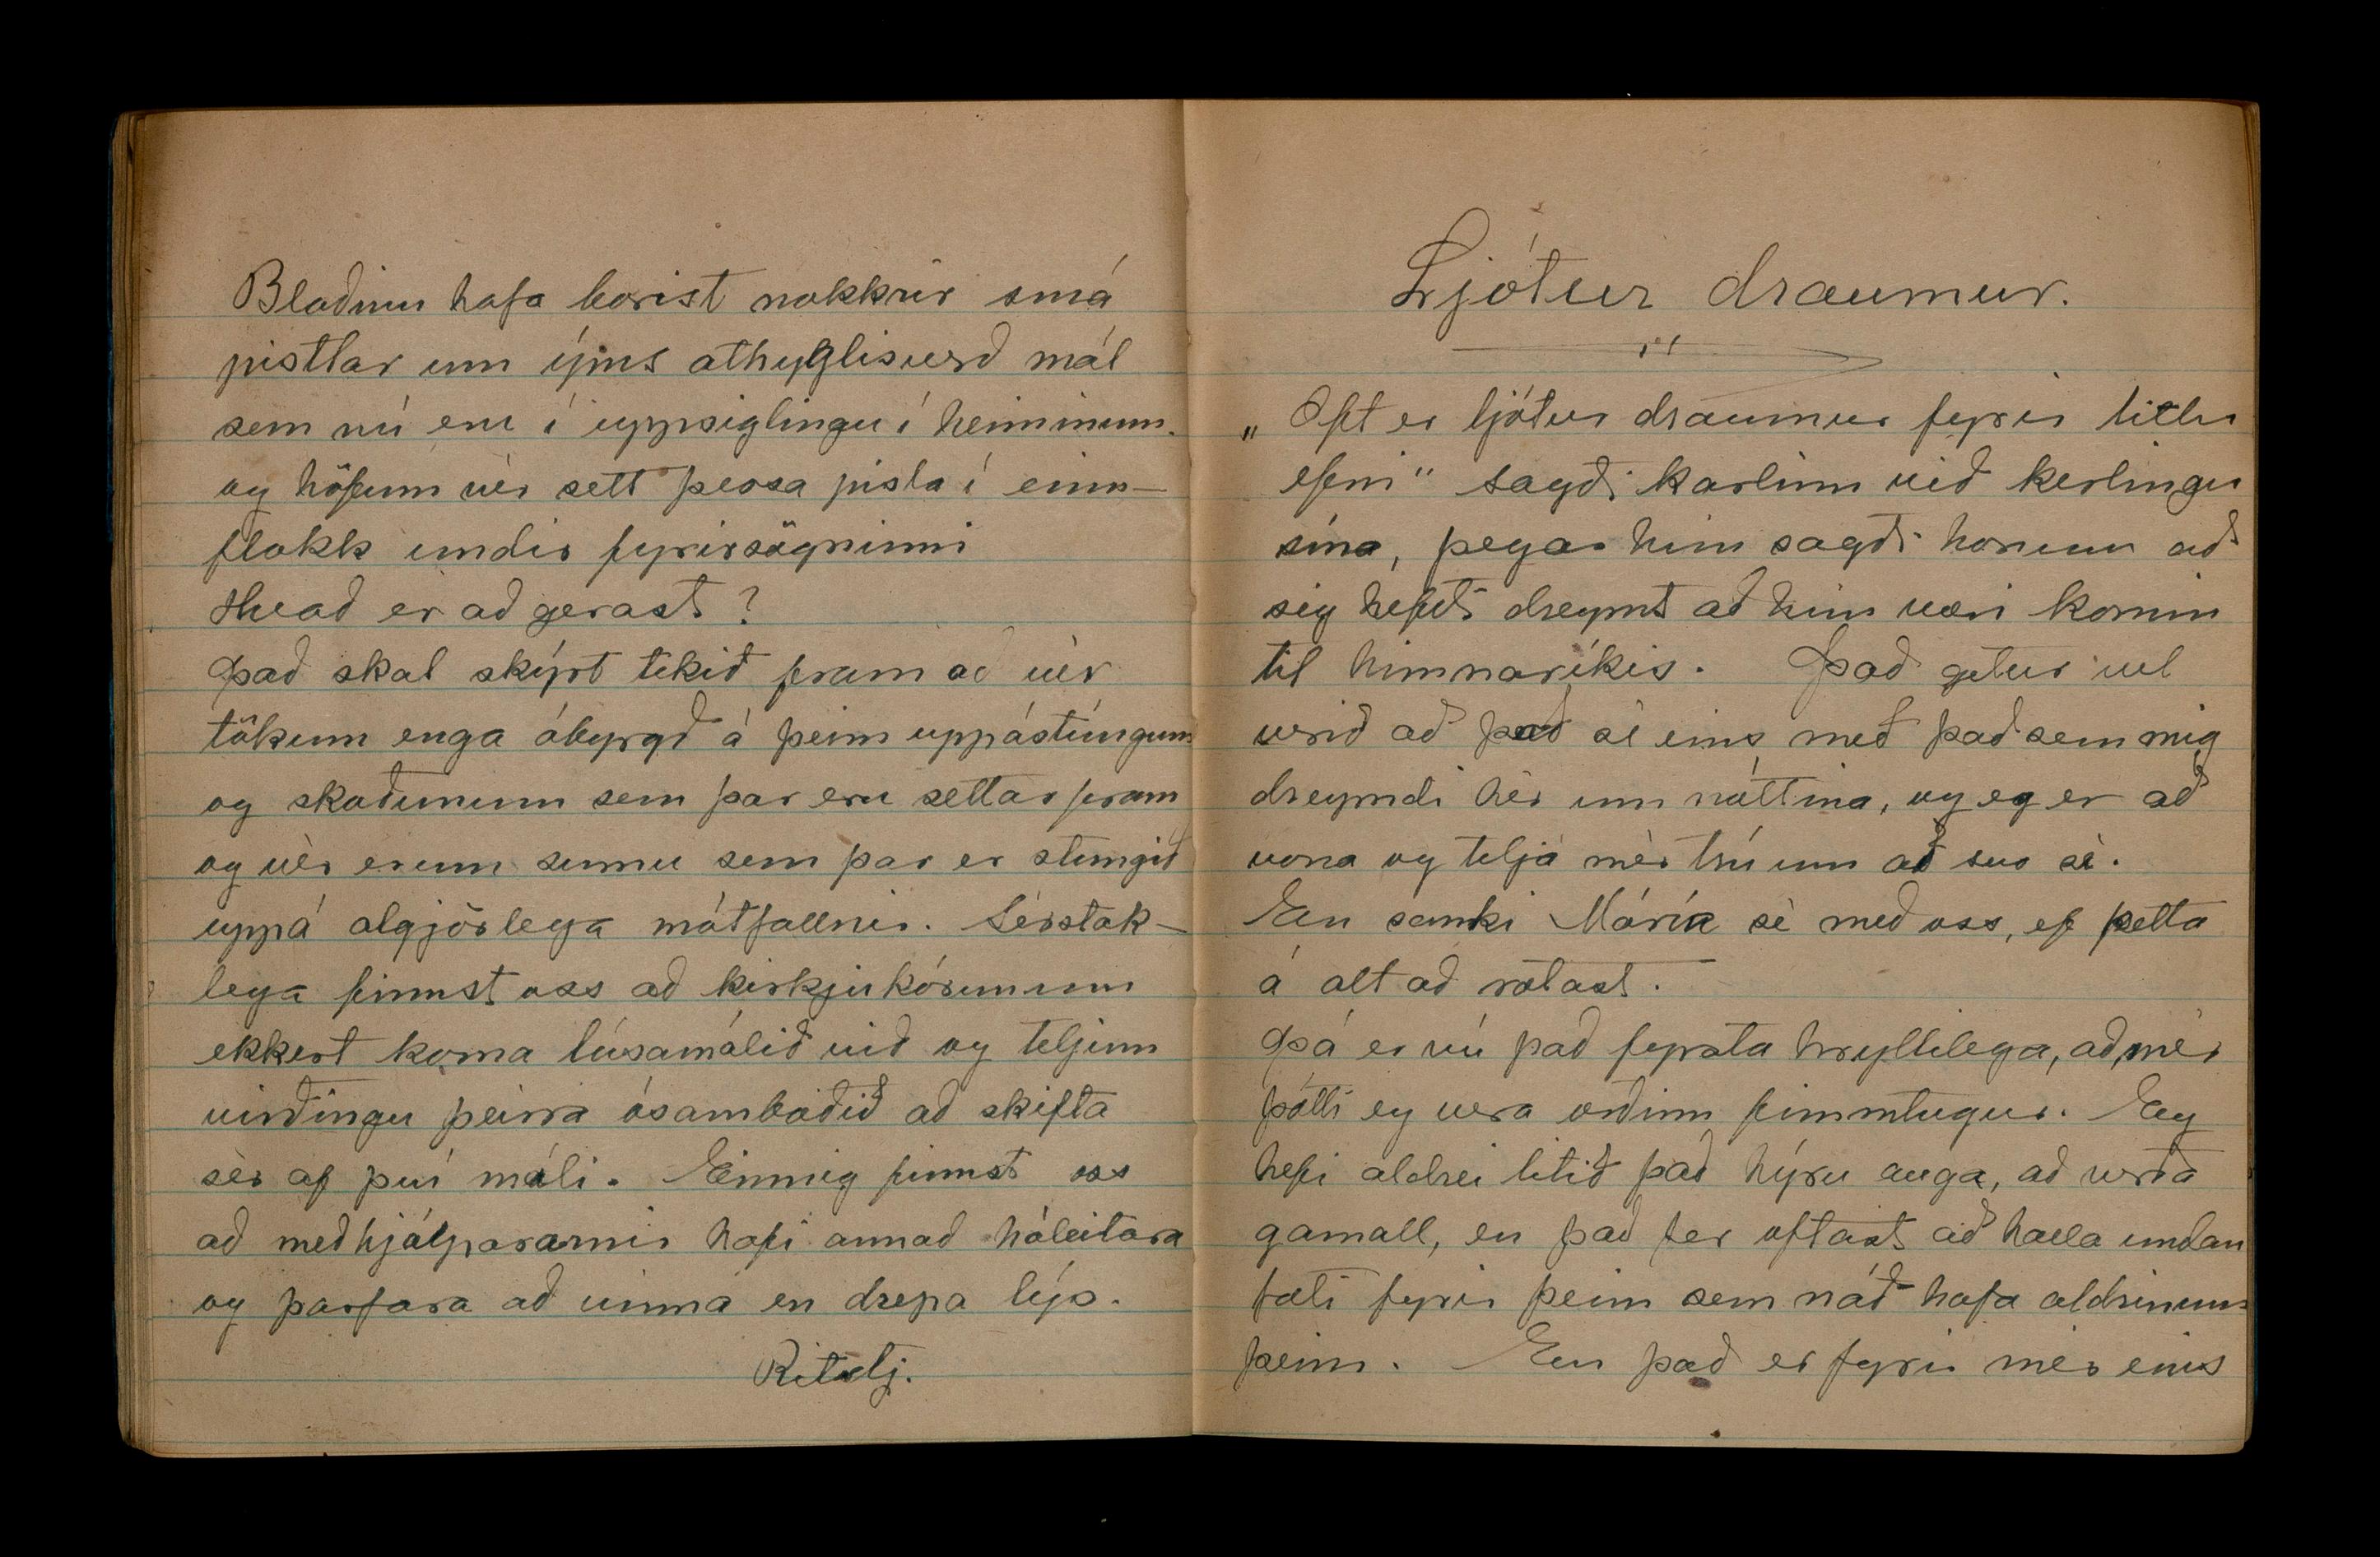 Blaðinu hafa borist nokkrir smá
pistlar um ýms athyglisverð mál
sem nú eru í uppsiglingu í heiminum.
og höfum vér sett þessa pistla í einn-
flokk undir fyrirsögninni
Hvað er að gerast?
Það skal skýrt tekið fram að vér
tökum enga ábyrgð á þeim uppástúngum
og skoðunum sem þar eru settar fram
og vér erum sumu sem þar er stungið
uppá algjörlega mótfallnir. Sérstak-
lega finnst oss að kirkjukórunum
ekkert koma lúsamálið við og teljum
virðingu þeirra ósamboðið að skifta
sér af því máli. Einnig finnst oss
að meðhjálpararnir hafi annað háleitara
og þarfara að vinna en drepa lýs.
Ritstj.
Ljótur draumur.
„Oft er ljótur draumur fyrir litlu
efni" sagði karlinn við kerlingu
sína, þegar hún sagði honum að
sig hefði dreymt að hún væri komin
til himnaríkis. Það getur vel
verið að það sé eins með það sem mig
dreymdi hér um nóttina, og eg er að
vona og telja mér trú um að svo sé.
En sankti Máría sé með oss, ef þetta
á alt að rætast.
Þá er nú það fyrsta hryllilega, að mér
þótti eg vera orðinn fimmtugur. Eg
hefi aldrei litið það hýru auga, að verða
gamall, en það fer oftast að halla undan
fæti fyrir þeim sem náð hafa aldrinum
þeim. En það er fyrir mér eins